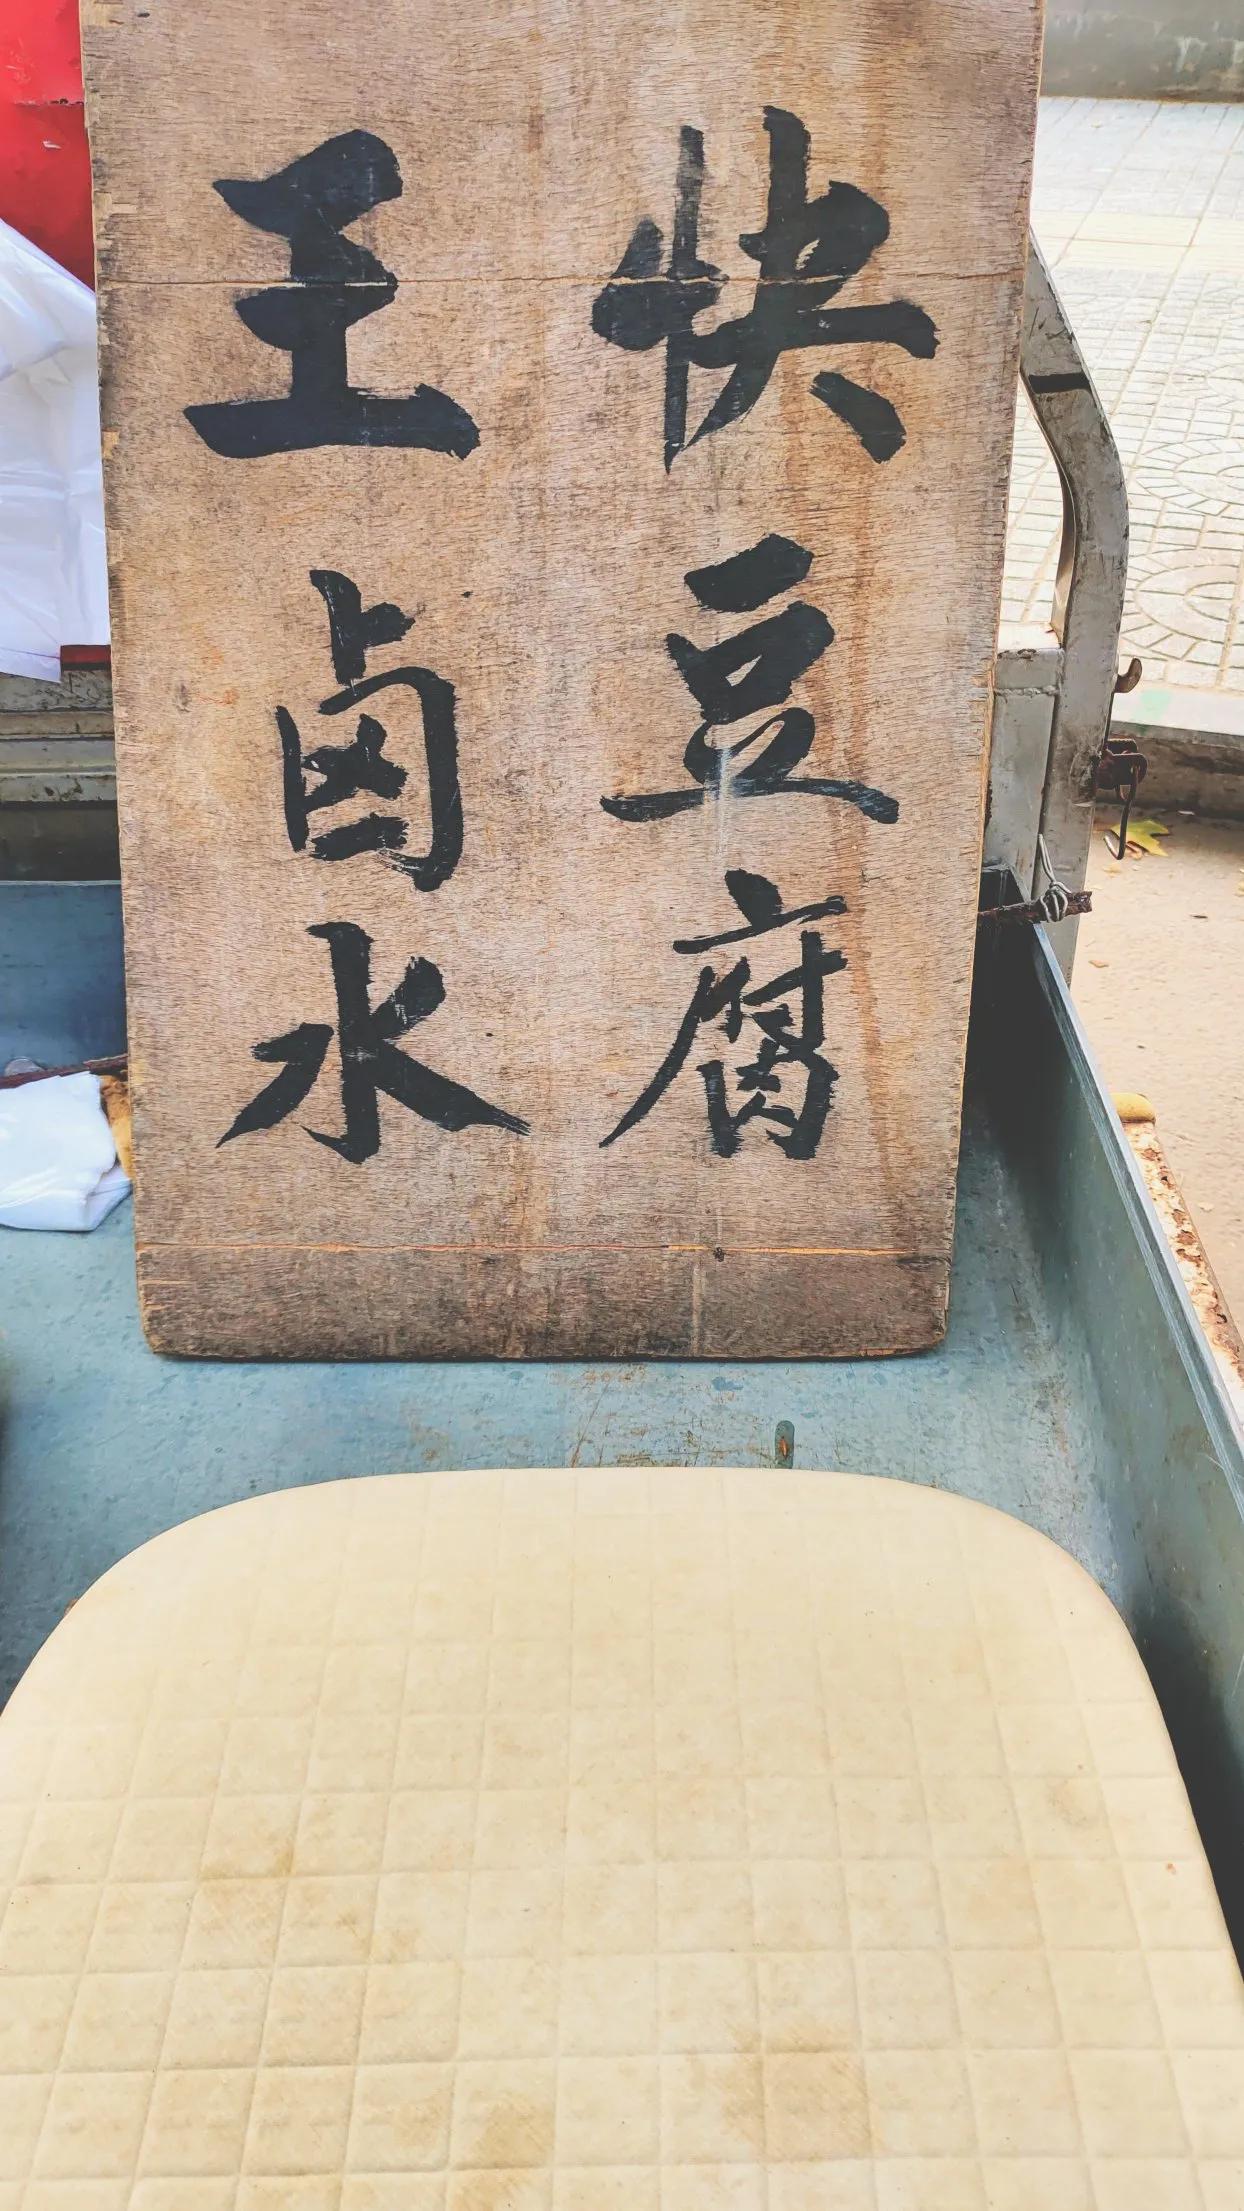 王快
卤水
豆腐